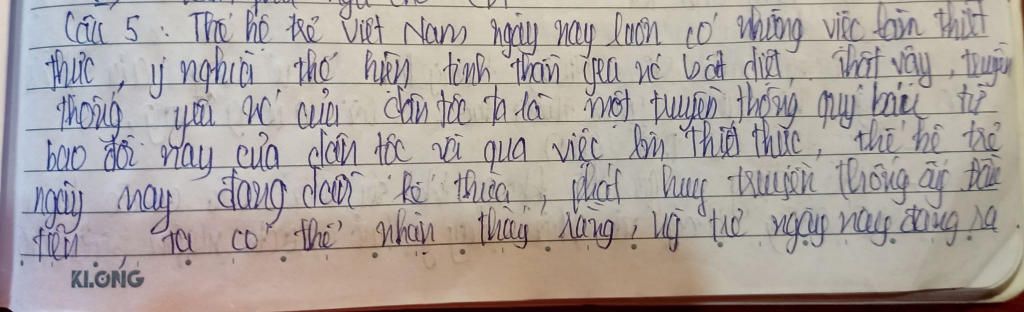 Câu 5 : Thế hệ trẻ Việt Nam ngày nay luôn có những việc làm thiết
thực, ý nghĩa thể hiện tinh thần yêu nc bất diệt. Thật vậy, truyền
thống yêu nc của dân tộc ta là một truyền thống quý báu từ
bao đời nay của dân tộc và qua việc làm thiết thực, thế hệ trẻ
ngày nay đang dần kế thừa, phát huy truyền thống ấy. Đầu
tiên ta có thể nhận thấy rằng, ng trẻ ngày nay đang ra
KLONG